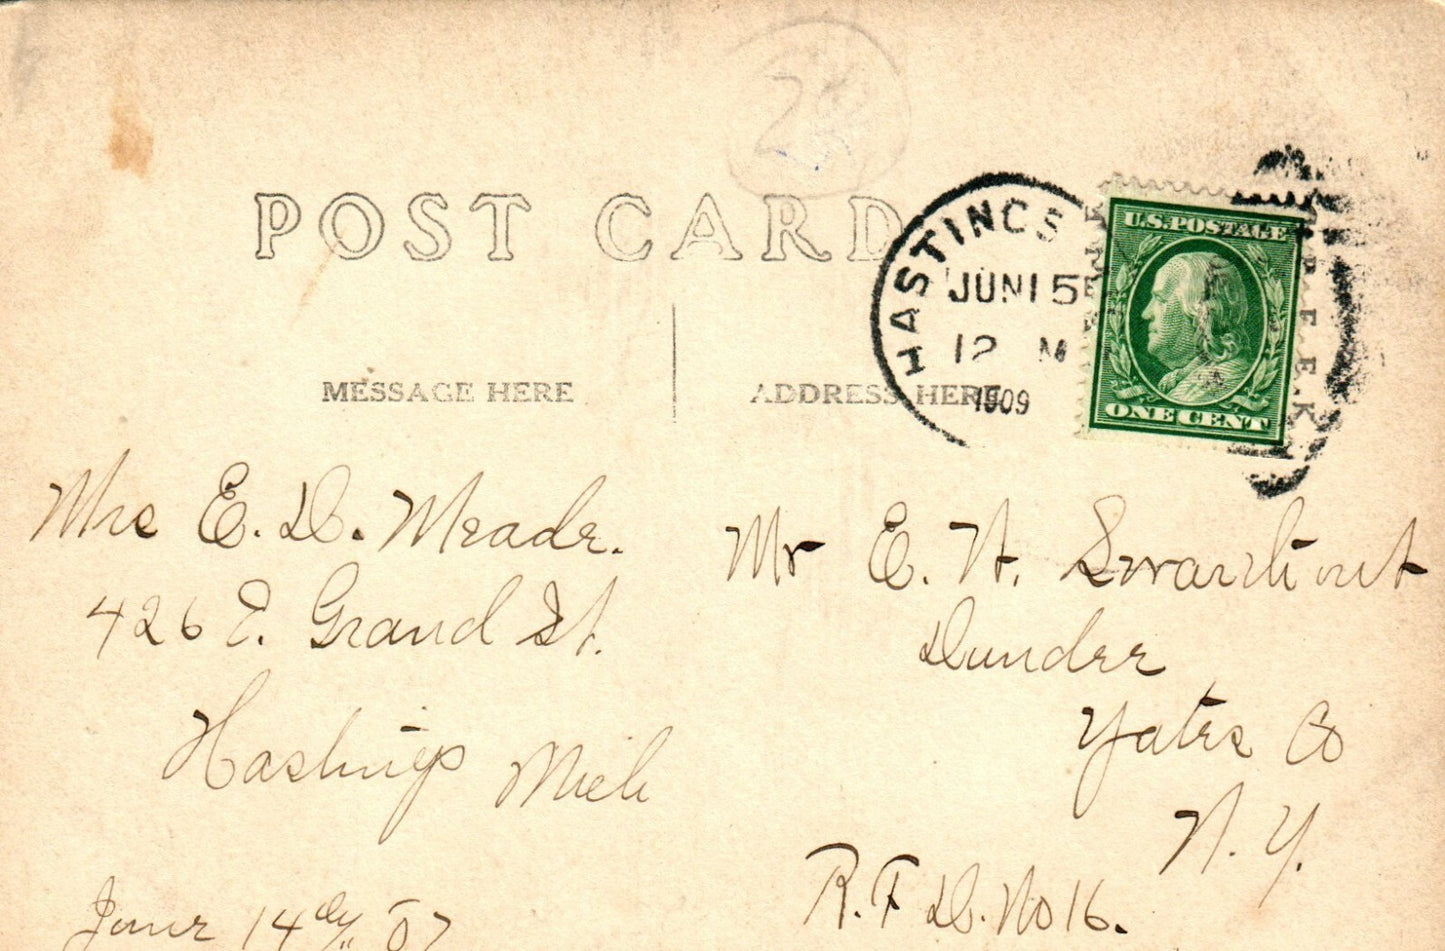 POST CARD
HASTINGS
JUN 15
12 M
1909
U.S. POSTAGE
ONE CENT
MESSAGE HERE
ADDRESS HERE
Mrs E. D. Meade.
426 E. Grand St.
Hastings Mich
June 14
Mr E. H. Swarthout
Dundee
Yates Co
N. Y.
R. F. D. No 16.